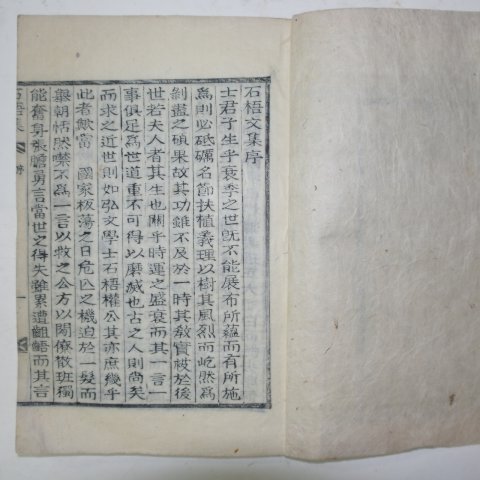 石梧文集序
士君子生乎衰季之世旣不能展布所蘊而有所施
爲則必砥礪名節扶植義理以樹其風烈而屹然爲
剝盡之碩果故其功雖不及於一時其敎實被於後
世若夫人者其生也關乎時運之盛衰而其一言一
事俱足爲世道重不可得以磨滅也古之人則尙矣
而求之近世則如弘文學士石梧權公其亦庶幾乎
此者歟當 國家板蕩之日危亡之機迫於一髮而
擧朝恬然噤不爲一言以救之公方以閒僚散班獨
能奮身張膽勇言當世之得失雖累遭齟齬而其言
石梧集 序 一